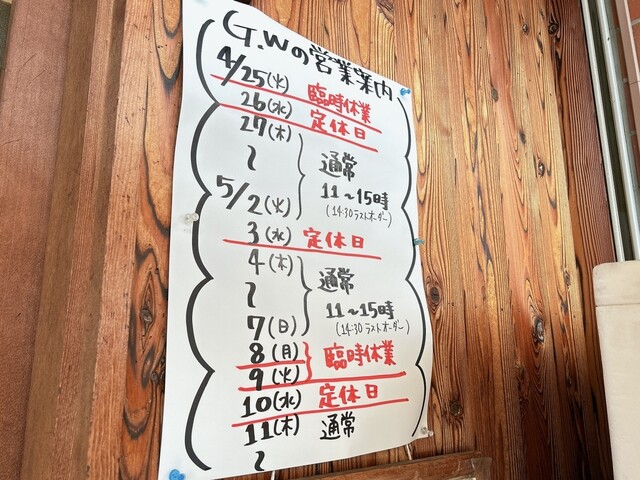 G.Wの営業案内
4/25(火) 臨時休業
26(水) 定休日
27(木)
〜 通常
11〜15時
5/2(火) (14:30ラストオーダー)
3(水) 定休日
4(木)
〜 通常
11〜15時
7(日) (14:30ラストオーダー)
8(月)
9(火) 臨時休業
10(水) 定休日
11(木) 通常
〜